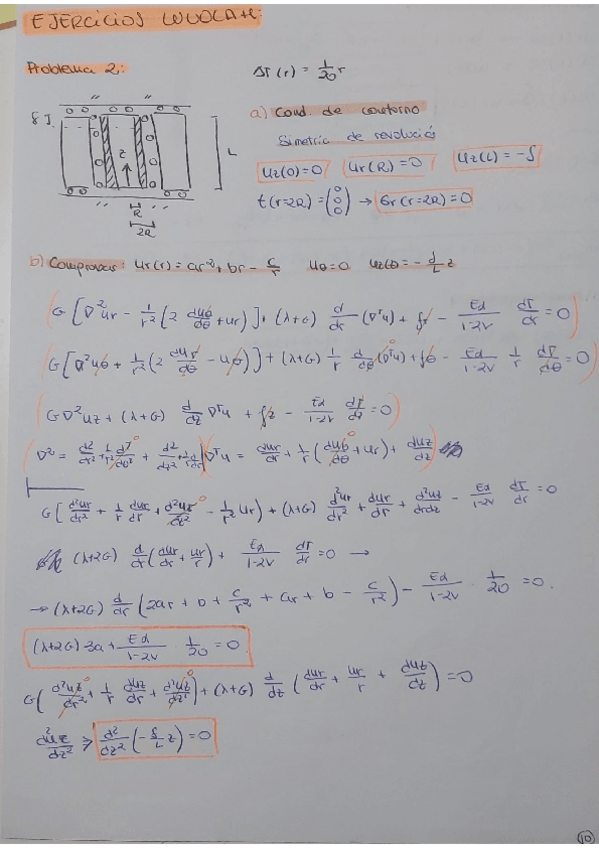 EJERCICIOS
Problema 2:
ΔT(r) = 1/20 r
a) Cond. de contorno
Simetría de revolución
uz(0)=0 ur(R)=0 uz(L)=-δ
t(r=2R) = (0 0 0) → σr(r=2R)=0
z
L
R
2R
b) Comprobar: ur(r) = ar²+br - c/r uθ=0 uz(z) = -δ/L z
G[∇²ur - 1/r²(2 duθ/dθ + ur)] + (λ+G) d/dr (∇ᵀu) + fr - Eα/1-2ν dT/dr = 0
G[∇²uθ + 1/r²(2 dur/dθ - uθ)] + (λ+G) 1/r d/dθ (∇ᵀu) + fθ - Eα/1-2ν 1/r dT/dθ = 0
G∇²uz + (λ+G) d/dz ∇ᵀu + fz - Eα/1-2ν dT/dz = 0
∇ᵀu = dur/dr + 1/r (duθ/dθ + ur) + duz/dz
G[d²ur/dr² + 1/r dur/dr + d²ur/dz² - 1/r² ur] + (λ+G) d²ur/dr² + dur/dr + d²uz/drdz - Eα/1-2ν dT/dr = 0
(λ+2G) d/dr (dur/dr + ur/r) + Eα/1-2ν dT/dr = 0 →
→ (λ+2G) d/dr (2ar + b + c/r² + ar + b - c/r²) - Eα/1-2ν · 1/20 = 0.
(λ+2G) 3a + Eα/1-2ν · 1/20 = 0.
G(d²uz/dr² + 1/r duz/dr + d²uz/dz²) + (λ+G) d/dz (dur/dr + ur/r + duz/dz) = 0
d²uz/dz² → d²/dz² (-δ/L z) = 0
10